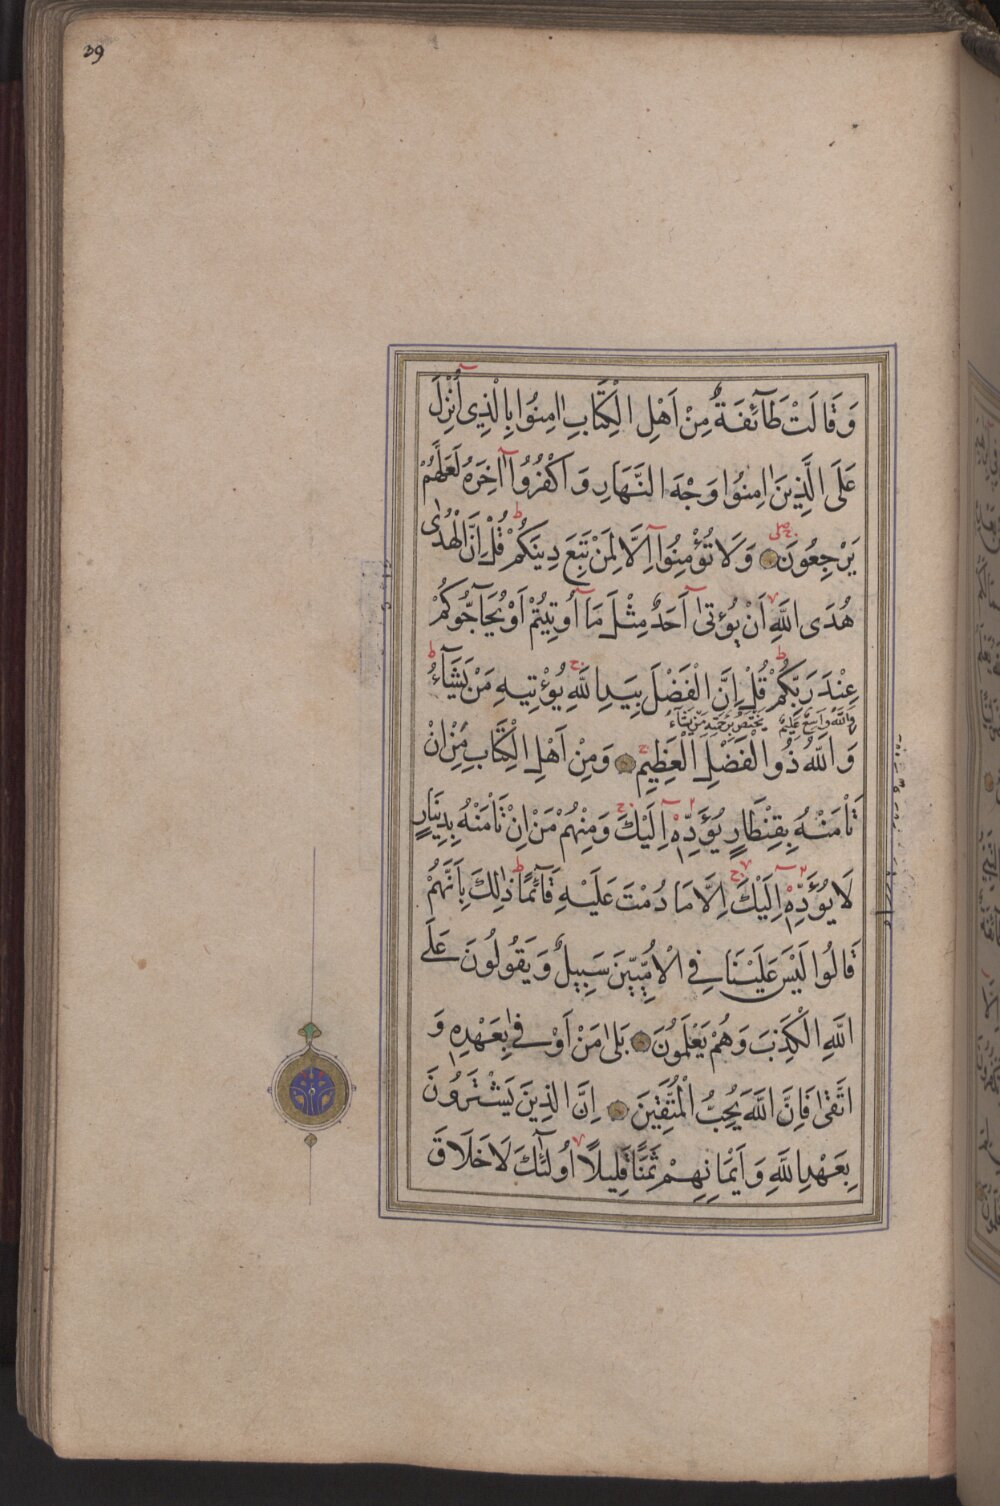 39
وَقَالَتْ طَآئِفَةٌ مِنْ اَهْلِ الْكِتَابِ اٰمِنُوا بِالَّذِى اُنْزِلَ
عَلَى الَّذِينَ اٰمَنُوا وَجْهَ النَّهَارِ وَاكْفُرُوآ اٰخِرَهُ لَعَلَّهُمْ
يَرْجِعُونَ وَلَا تُؤْمِنُوآ اِلَّا لِمَنْ تَبِعَ دِينَكُمْ قُلْ اِنَّ الْهُدٰى
هُدَى اللّٰهِ اَنْ يُؤْتىٰٓ اَحَدٌ مِثْلَ مَآ اُوتِيتُمْ اَوْ يُحَآجُّوكُمْ
عِنْدَ رَبِّكُمْ قُلْ اِنَّ الْفَضْلَ بِيَدِ اللّٰهِ يُؤْتِيهِ مَنْ يَشَآءُ
وَاللّٰهُ وَاسِعٌ عَلِيمٌ يَخْتَصُّ بِرَحْمَتِهِ مَنْ يَشَآءُ
وَاللّٰهُ ذُو الْفَضْلِ الْعَظِيمِ وَمِنْ اَهْلِ الْكِتَابِ مَنْ اِنْ
تَأْمَنْهُ بِقِنْطَارٍ يُؤَدِّهٖٓ اِلَيْكَ وَمِنْهُمْ مَنْ اِنْ تَأْمَنْهُ بِدِينَارٍ
لَا يُؤَدِّهٖٓ اِلَيْكَ اِلَّا مَا دُمْتَ عَلَيْهِ قَآئِمًا ذٰلِكَ بِاَنَّهُمْ
قَالُوا لَيْسَ عَلَيْنَا فِى الْاُمِّيِّينَ سَبِيلٌ وَيَقُولُونَ عَلَى
اللّٰهِ الْكَذِبَ وَهُمْ يَعْلَمُونَ بَلىٰ مَنْ اَوْفىٰ بِعَهْدِهٖ وَ
اتَّقىٰ فَاِنَّ اللّٰهَ يُحِبُّ الْمُتَّقِينَ اِنَّ الَّذِينَ يَشْتَرُونَ
بِعَهْدِ اللّٰهِ وَاَيْمَانِهِمْ ثَمَنًا قَلِيلًا اُولٰٓئِكَ لَا خَلَاقَ